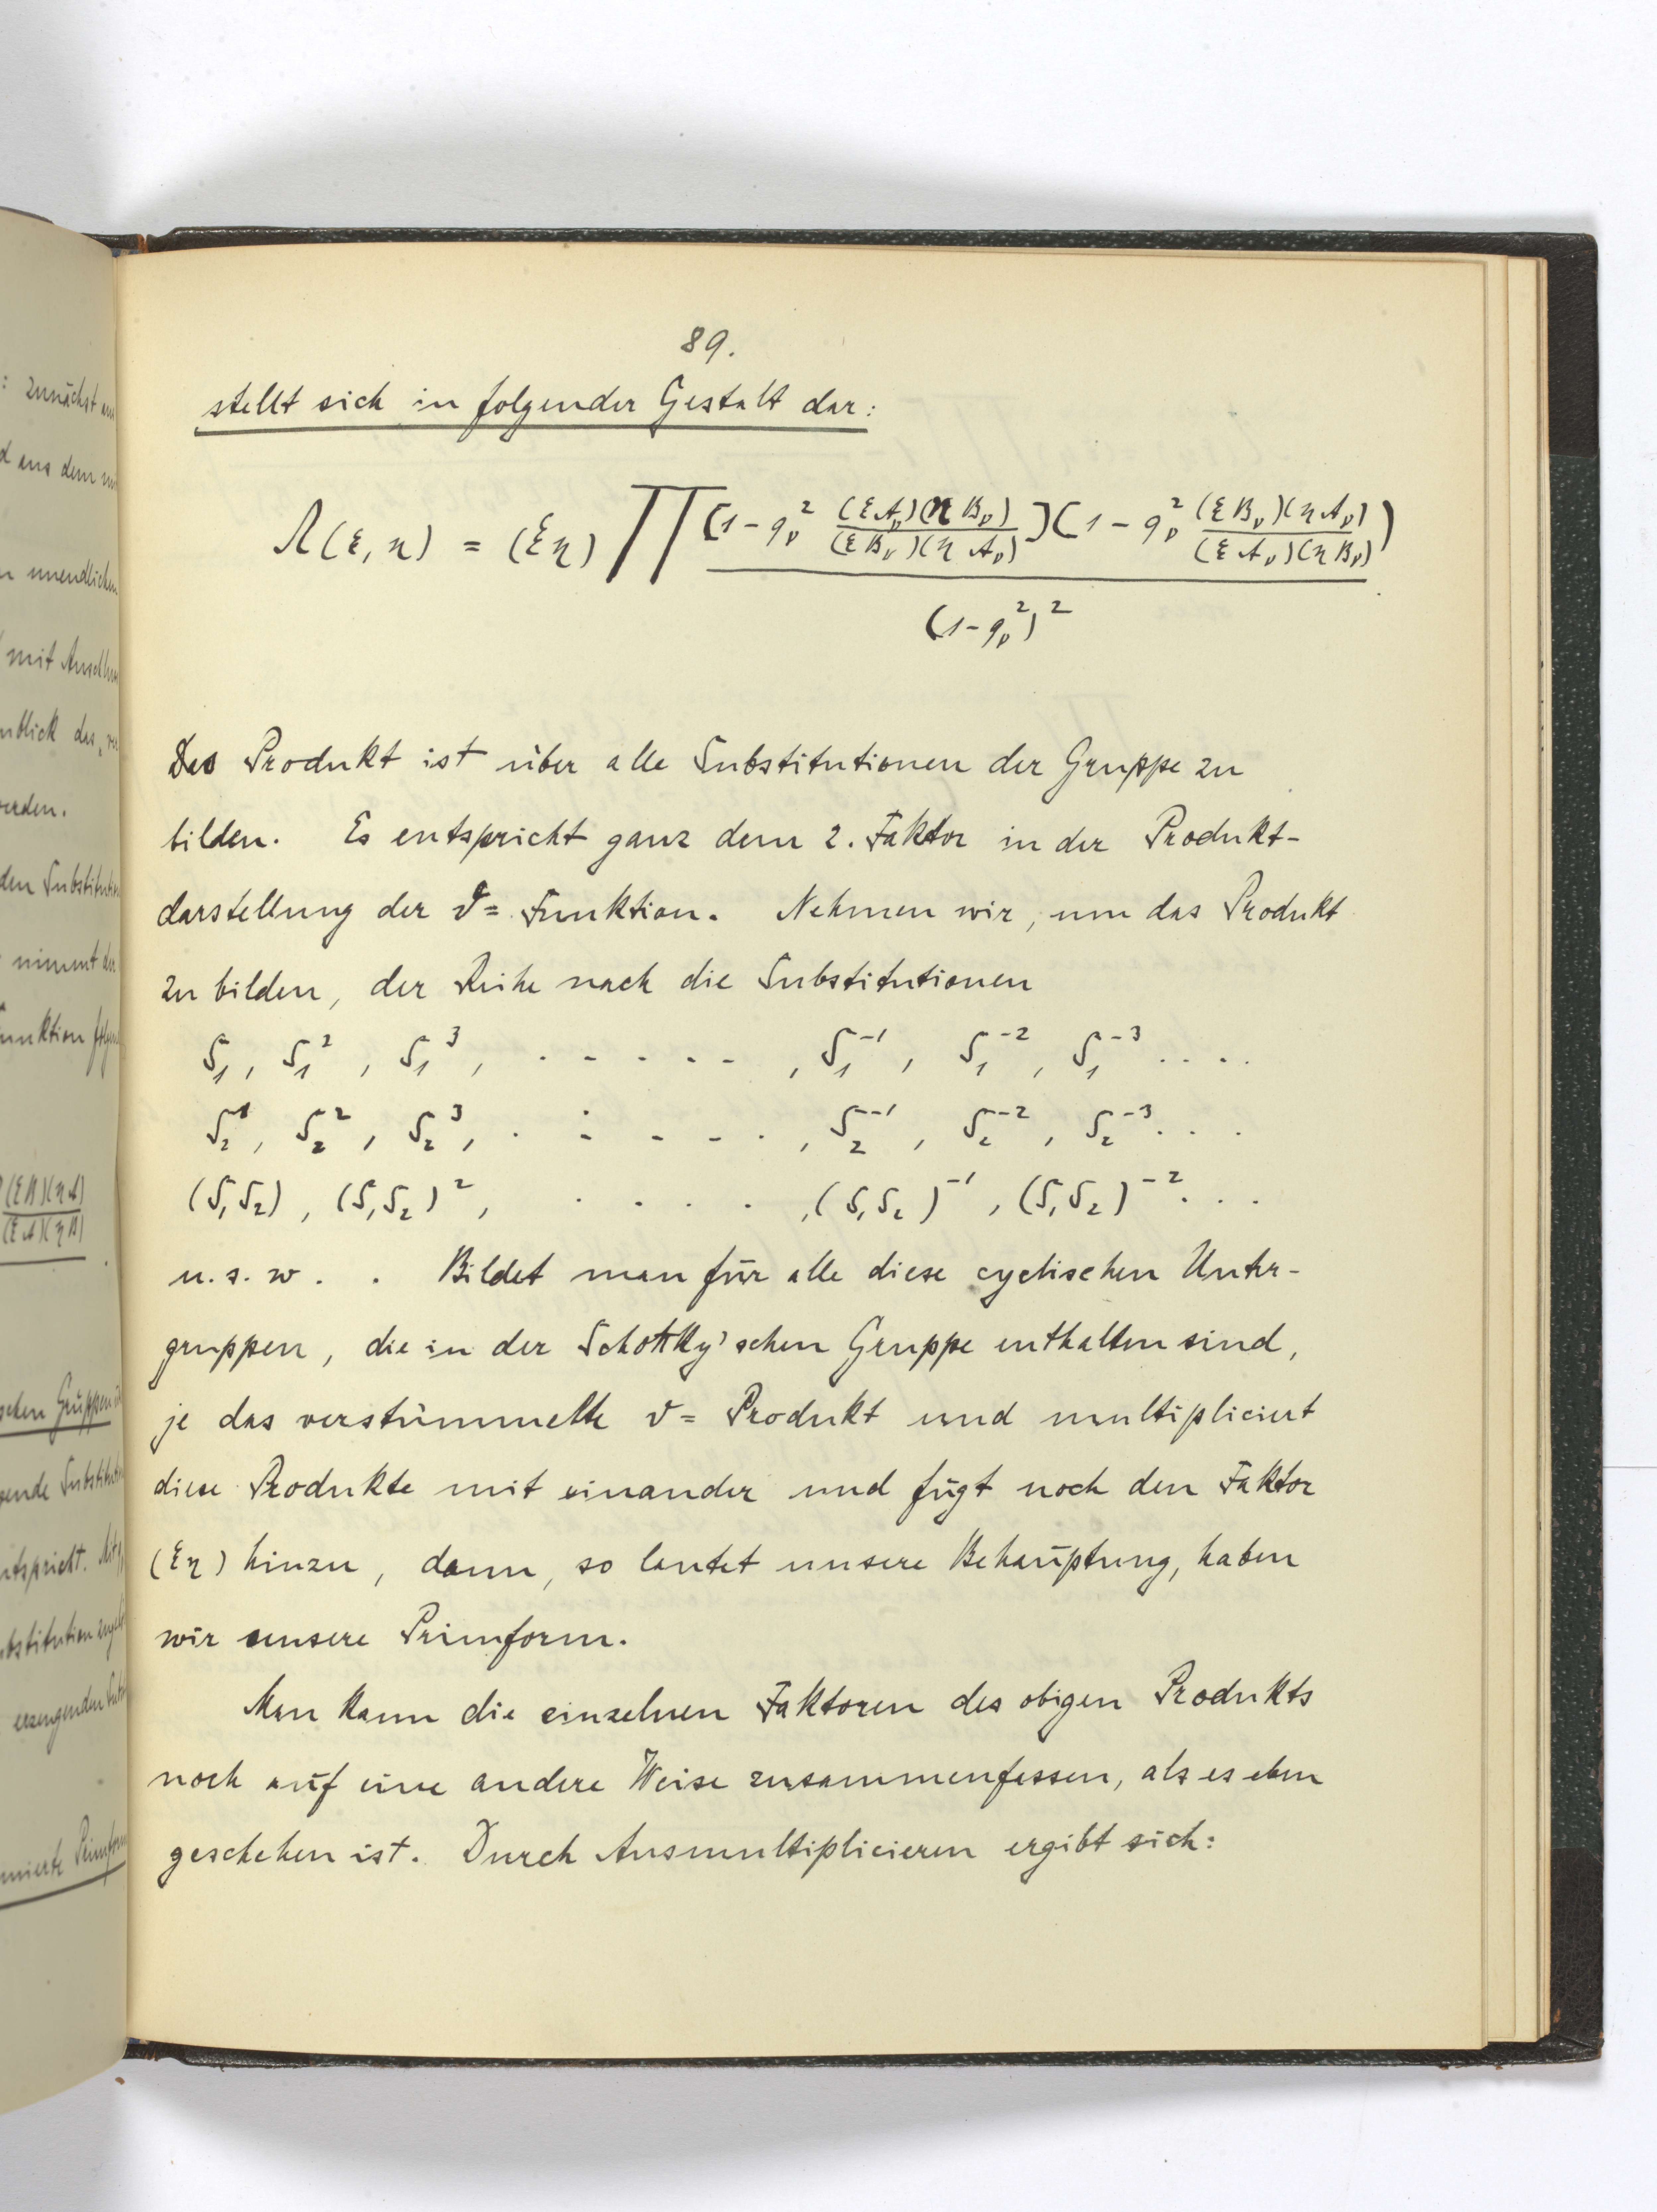 89.
stellt sich in folgender Gestalt dar:
Λ(ξ,η) = (ξη) ∏ [1-q_ν^2 (ξA_ν)(ηB_ν)/(ξB_ν)(ηA_ν)] (1-q_ν^2 (ξB_ν)(ηA_ν)/(ξA_ν)(ηB_ν))
(1-q_ν^2)^2
Das Produkt ist über alle Substitutionen der Gruppe zu
bilden. Es entspricht ganz dem 2. Faktor in der Produkt-
darstellung der ϑ= Funktion. Nehmen wir, um das Produkt
zu bilden, der Reihe nach die Substitutionen
S_1, S_1^2, S_1^3, . - - - - , S_1^-1, S_1^-2, S_1^-3 . . . .
S_2^1, S_2^2, S_2^3, . - - - . , S_2^-1, S_2^-2, S_2^-3 . . .
(S_1S_2), (S_1S_2)^2, . . . . ,(S_1S_2)^-1, (S_1S_2)^-2 . . .
u. s. w. . Bildet man für alle diese cyclischen Unter-
gruppen, die in der Schottky'schen Gruppe enthalten sind,
je das verstümmelte ϑ= Produkt und multipliciert
diese Produkte mit einander und fügt noch den Faktor
(ξη) hinzu, dann, so lautet unsere Behauptung, haben
wir unsere Primform.
Man kann die einzelnen Faktoren des obigen Produkts
noch auf eine andere Weise zusammenfassen, als es eben
geschehen ist. Durch Ausmultiplicieren ergibt sich:
: zunächst
aus dem
unendlichen
mit
nblick des
werden.
den
nimmt
unktion
(ξB)(ηA)
(ξA)(ηB)
schen Gruppen
entspricht.
bstitution
erzeugenden